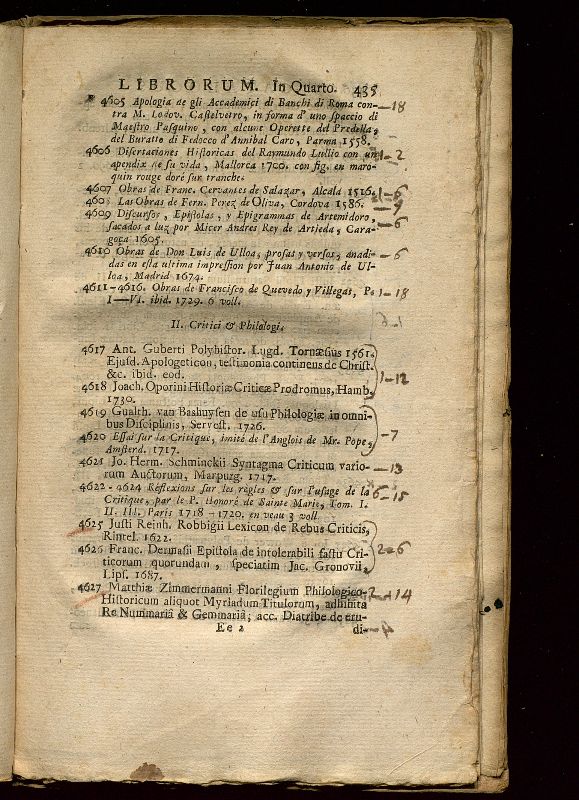 LIBRORUM. In Quarto. 435
4605 Apologia de gli Academici di Banchi di Roma con- —18
tra M. Lodov. Castelvetro, in forma d' uno spaccio di
Maestro Pasquino, con alcune Operette del Predella,
del Buratto di Fedocco d' Annibal Caro, Parma 1558.
4606 Disertaciones Historicas del Raymundo Lullio con un 1—2
apendix de su vida, Mallorca 1700. con fig. en maro-
quin rouge doré sur tranche.
4607 Obras de Franc. Cervantes de Salazar, Alcala 1516. —6
4608 Las Obras de Fern. Perez de Oliva, Cordova 1586.
4609 Discursos, Epistolas, y Epigrammas de Artemidoro, —6
sacados a luz por Micer Andres Rey de Artieda, Cara-
goça 1605.
4610 Obras de Don Luis de Ulloa, prosas y versos, anadi- —6
das en esta ultima impression por Juan Antonio de Ul-
loa, Madrid 1674.
4611-4616. Obras de Francisco de Quevedo y Villegas, P. 1—18
I—VI. ibid. 1729. 6 voll.
II. Critici & Philologi.
4617 Ant. Guberti Polyhistor. Lugd. Tornæsius 1561.
Ejusd. Apologeticon, testimonia continens de Christ.
&c. ibid. eod. 1—12
4618 Joach. Oporini Historiæ Criticæ Prodromus, Hamb.
1730.
4619 Gualth. van Bashuysen de usu Philologiæ in omni-
bus Disciplinis, Servest. 1726.
4620 Essai sur la Critique, imité de l'Anglois de Mr. Pope, —7
Amsterd. 1717.
4621 Jo. Herm. Schminckii Syntagma Criticum vario- —13
rum Auctorum, Marpurg. 1717.
4622-4624 Réflexions sur les regles & sur l'usage de la 6—15
Critique, par le P. Honoré de Sainte Marie, Tom. I.
II. III. Paris 1718-1720. en veau 3 voll.
4625 Justi Reinh. Robbigii Lexicon de Rebus Criticis,
Rintel. 1622.
4626 Franc. Dermasii Epistola de intolerabili fastu Cri- 2—6
ticorum quorundam, speciatim Jac. Gronovii,
Lips. 1687.
4627 Matthiæ Zimmermanni Florilegium Philologico- 2—14
Historicum aliquot Myriadum Titulorum, adhibita
Re Nummariâ & Gemmariâ; acc. Diatribe de eru-
Ee 2 di-